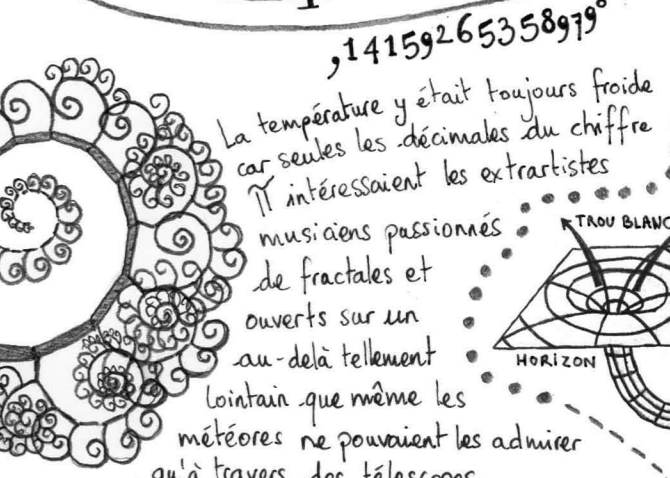 ,14159265358979°
La température y était toujours froide
car seules les décimales du chiffre
π intéressaient les extrartistes
musiciens passionnés
de fractales et
ouverts sur un
au-delà tellement
lointain que même les
météores ne pouvaient les admirer
qu'à travers des télescopes
TROU BLANC
HORIZON